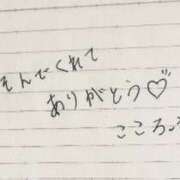 そんでくれて
ありがとう♡
こころ